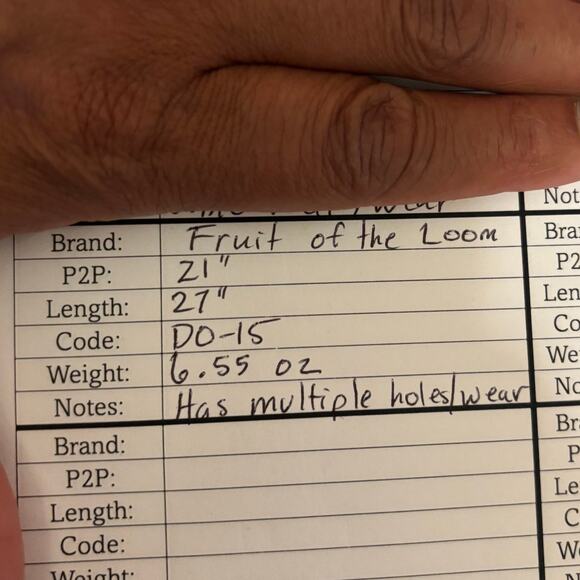 wear Not
Brand: Fruit of the Loom Bra
P2P: 21" P2
Length: 27" Len
Code: DO-15 Co
Weight: 6.55 oz We
Notes: Has multiple holes/wear No
Brand: Br
P2P: P
Length: Le
Code: C
Weight: We